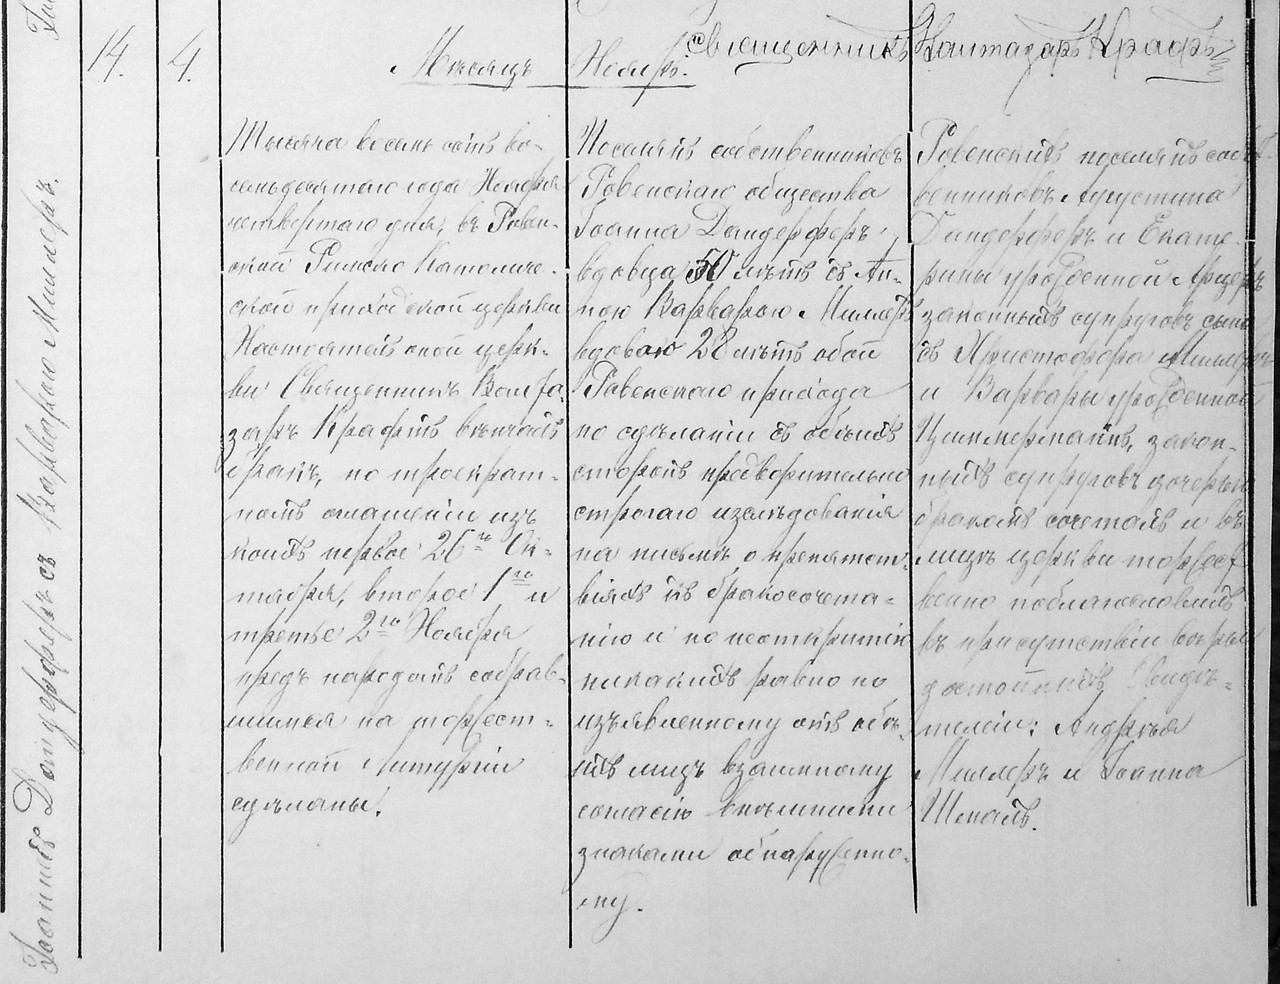 14.
4.
Мѣсяцъ Ноябрь.
Священникъ Балтазаръ Крафтъ
Іоаннъ Дандерферъ съ Варварою Миллеръ.
Тысяча восемь сотъ во-
семьдесятаго года Ноября
четвертаго дня, въ Ровен-
ской Римско Католиче-
ской приходской церкви
Настоятель оной церк-
ви Священникъ Балта
заръ Крафтъ вѣнчалъ
бракъ, по троекрат-
номъ оглашеніи изъ
коихъ первое 26го Ок-
тября, второе 1го и
третье 2го Ноября
предъ народомъ собрав-
шимся на торжест-
венной Литургіи
сдѣланы.
Поселянъ собственниковъ
Ровенскаго общества
Іоанна Дандерферъ
вдовца 50 лѣтъ съ Ан-
ною Варварою Миллеръ
вдовою 28 лѣтъ обой
Ровенскаго прихода
по сдѣланіи съ обѣихъ
сторонъ предворительно
строгаго изслѣдованія
на письмѣ о препятст-
віяхъ къ бракосочета-
нію и по неоткрытіи
никакихъ равно по
изъявленному отъ обѣ-
ихъ лицъ взаимному
согласію внѣшними
знаками обнаруженно-
му.
Ровенскихъ поселянъ собст
венниковъ Августина
Дандерферъ и Екате-
рины урожденной
законныхъ супруговъ сына
съ Христофора Миллеръ
и Варвары урожденной
Циммерманъ, закон-
ныхъ супруговъ дочерью
бракомъ сочеталъ и въ
лицѣ церкви торжест
венно поблагословилъ
въ присутствіи вѣры
достойныхъ Свидѣ-
телей: Андрея
Миллеръ и Іоанна
Шмалъ.